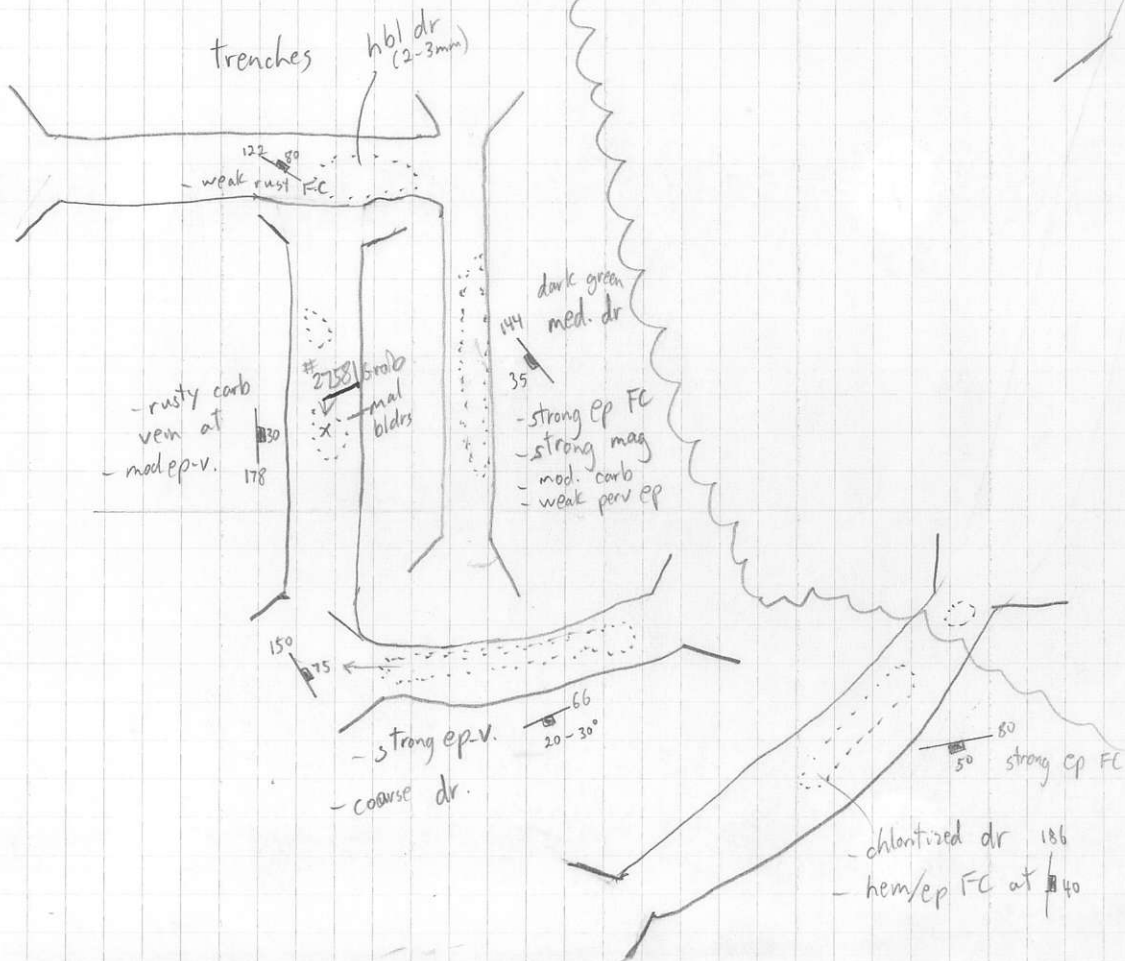 trenches
hbl dr
(2-3mm)
122
80
- weak rust FC
dark green
med. dr
144
35
- strong ep FC
- strong mag
- mod. carb
- weak perv ep
#
27581
mal
bldrs
- rusty carb
vein at
30
178
- mod ep-v.
150
75
- strong ep-v.
66
20-30°
- coarse dr.
80
50
strong ep FC
- chloritized dr
186
- hem/ep FC at
40